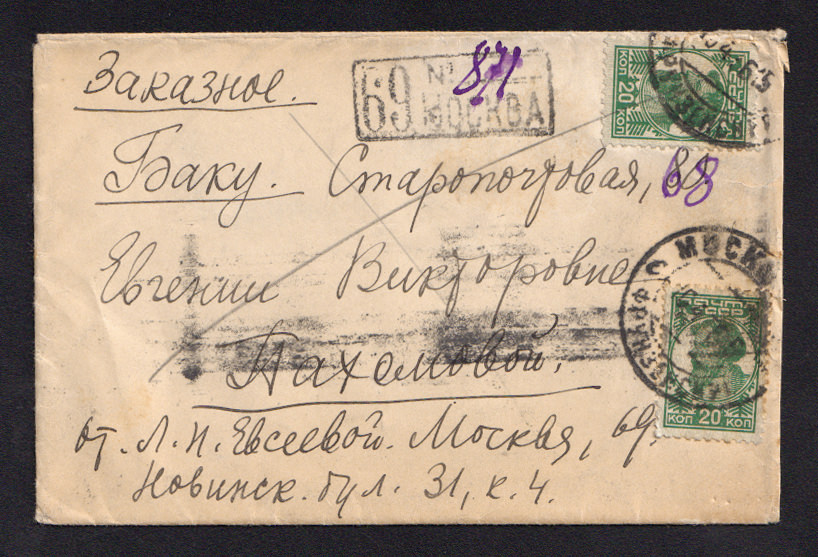 Заказное.
69 № 871
МОСКВА
Баку. Старопочтовая, 88
68
Евгении Викторовне
Пахомовой.
от. Л. Н. Евсеевой. Москва, 69.
Новинск. бул. 31, к. 4.
20 КОП КОП
МОСКВА
КОП 20 КОП